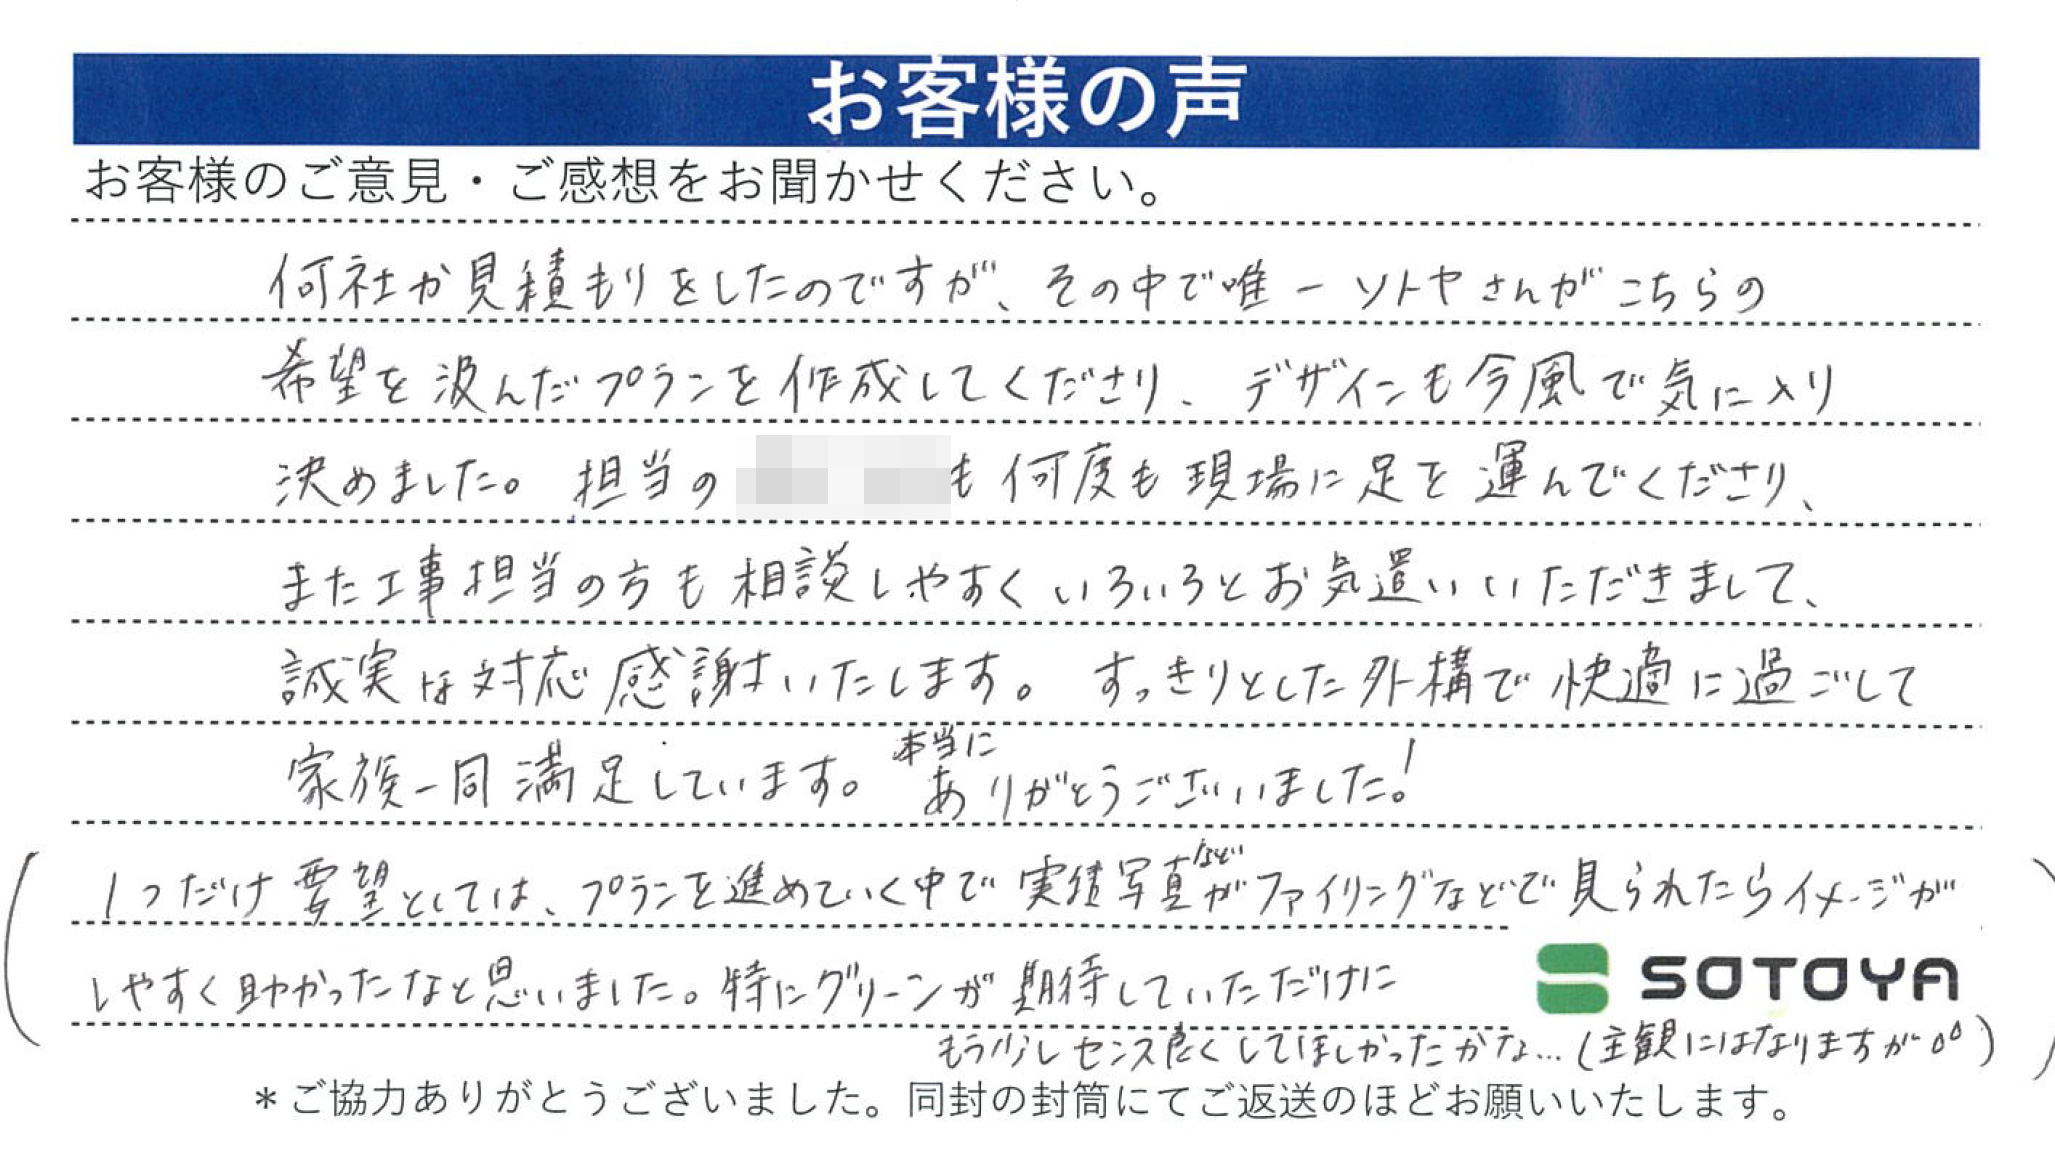 お客様の声
お客様のご意見・ご感想をお聞かせください。
何社か見積もりをしたのですが、その中で唯一ソトヤさんがこちらの
希望を汲んだプランを作成してくださり、デザインも今風で気に入り
決めました。担当の も何度も現場に足を運んでくださり、
また工事担当の方も相談しやすくいろいろとお気遣いいただきまして、
誠実な対応感謝いたします。すっきりとした外構で快適に過ごして
家族一同満足しています。本当にありがとうございました!
1つだけ要望としては、プランを進めていく中で実績写真などがファイリングなどで見られたらイメージが
しやすく助かったなと思いました。特にグリーンが期待していただけに
SOTOYA
もう少しセンス良くしてほしかったかな…(主観にはなりますが)
*ご協力ありがとうございました。同封の封筒にてご返送のほどお願いいたします。